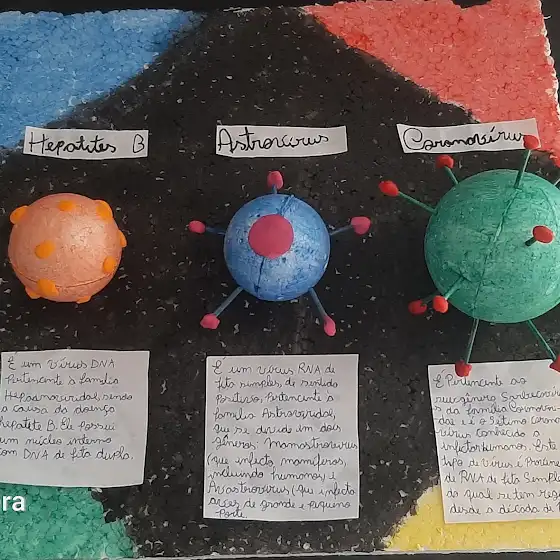 Hepatites B
Astrovírus
Coronavírus
É um vírus DNA
Pertencente à família
Hepadnaviridae, sendo
a causa da doença
hepatite B. Ele possui
um núcleo interno
com DNA de fita dupla.
É um vírus RNA de
fita simples, de sentido
positivo, Pertencente à
família Astroviridae,
que se divide em dois
gêneros: Mamastrovirus
(que infecta mamíferos,
incluindo humanos) e
Avastrovirus (que infecta
aves de grande e pequeno
porte.
É Pertencente ao
subgênero
da família
dae e é o sétimo
vírus conhecido a
infectar humanos. Este
tipo de vírus é
de RNA de fita simples
do qual se tem
desde a década de
ra